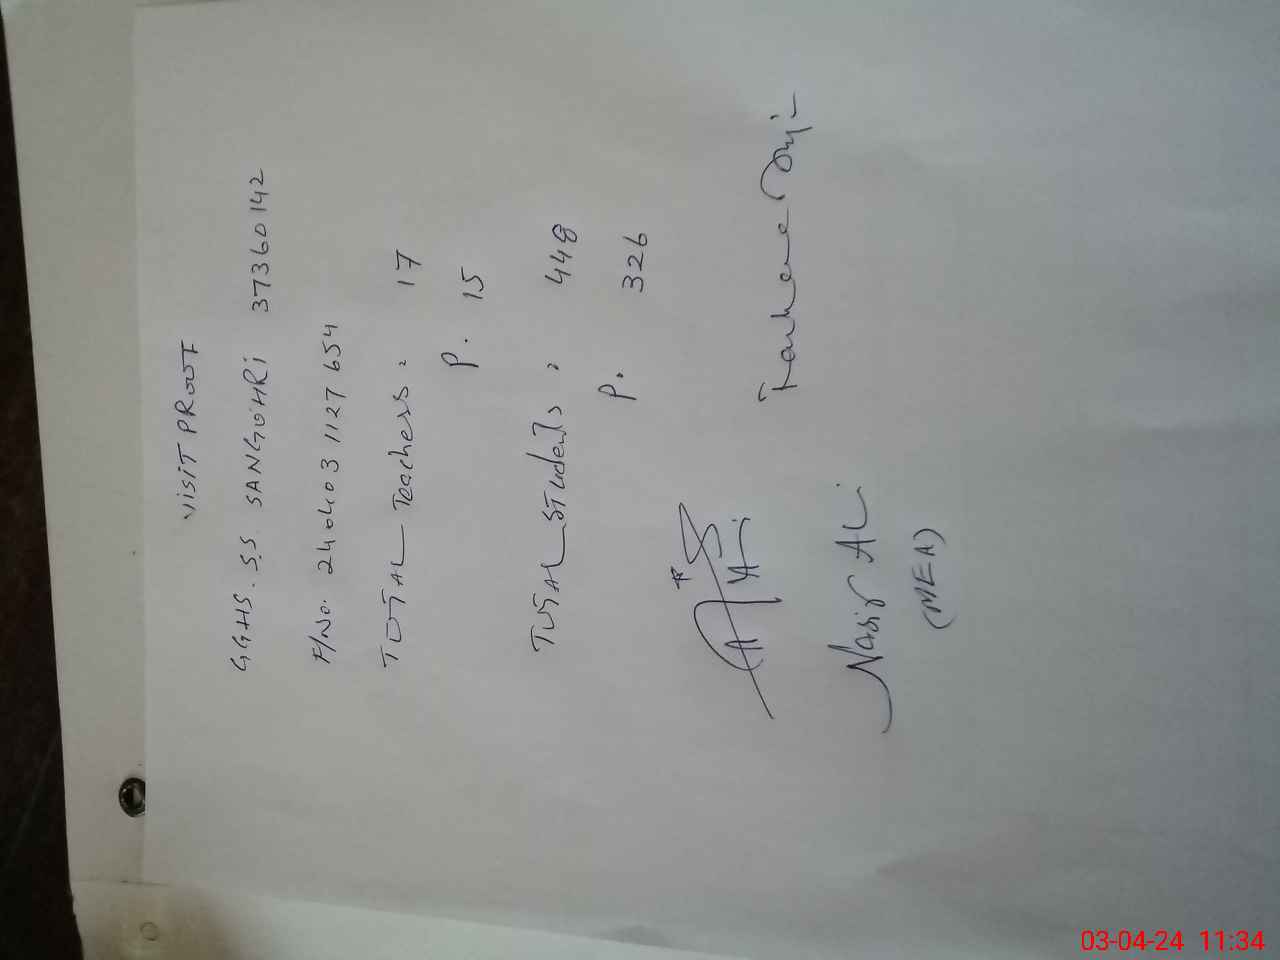 VISIT PROOF
GGHS. S.S. SANGOHRi 37360142
F/No. 240403 1127654
TOTAL Teachers = 17
P. 15
TOTAL Students = 448
P. 326
Nasir Ali
(MEA)
03-04-24 11:34